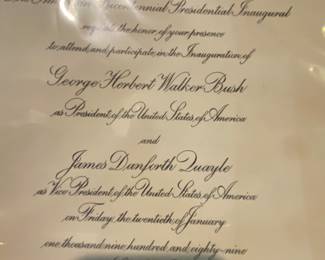 Bicentennial Presidential Inaugural
requests the honor of your presence
to attend and participate in the Inauguration of
George Herbert Walker Bush
as President of the United States of America
and
James Danforth Quayle
as Vice President of the United States of America
on Friday the twentieth of January
one thousand nine hundred and eighty-nine